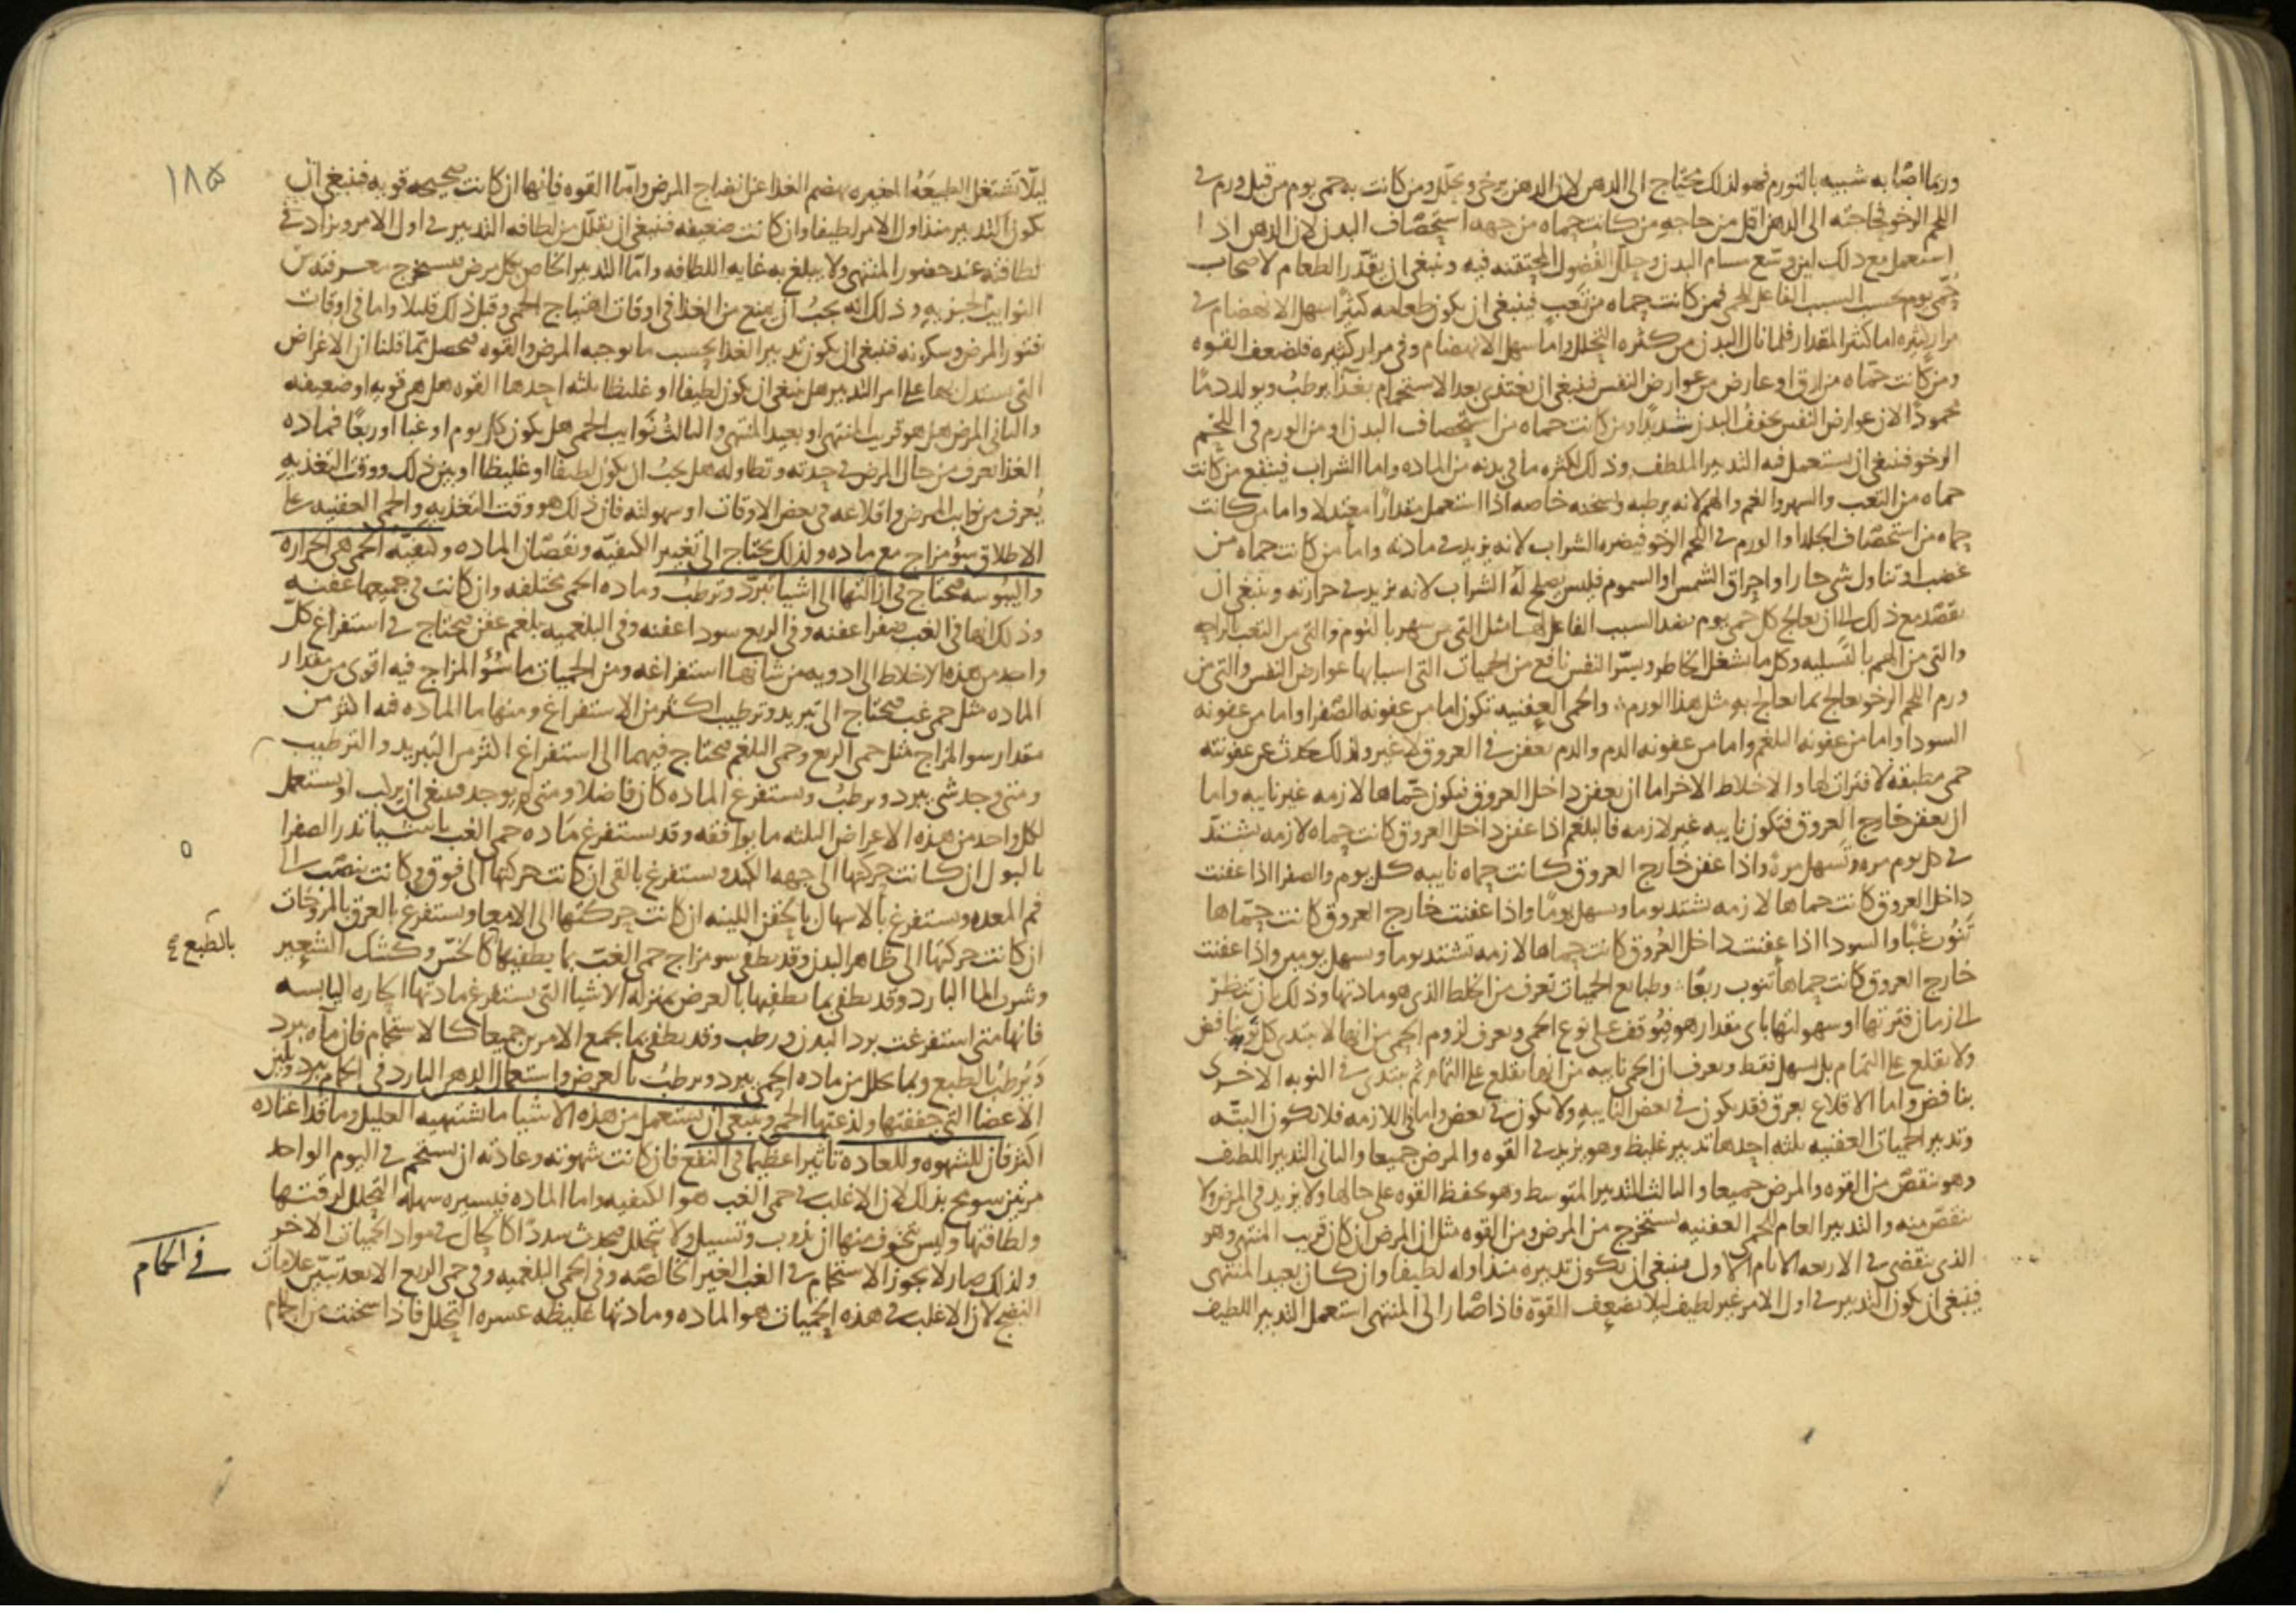 وربما اصابه شبيه بالتورم فهو لذلك يحتاج الى الدهن لان الدهن يرخى ويحلل ومن كانت به حمى يوم من قبل ورم فى
اللحم الرخو فحاجته الى الدهن اقل من حاجه من كانت حماه من جهه استحصاف البدن لان الدهن اذا
استعمل مع ذلك لين ووسع مسام البدن وحلل الفضول المحتقنه فيه وينبغى ان يقدر الطعام لاصحاب
حمى يوم بحسب السبب الفاعل للحمى فمن كانت حماه من تعب فينبغى ان يكون طعامه كثيرا سهل الانهضام فى
مرار كثيره اما كثير المقدار فلما نال البدن من كثره التحلل واما سهل الانهضام وفى مرار كثيره فلضعف القوه
ومن كانت حماه من ارق او عارض من عوارض النفس فينبغى ان يغتذى بعد الاستحمام بغذا يرطب ويولد دما
محمودا لان عوارض النفس يجفف البدن شديدا ومن كانت حماه من استحصاف البدن او من الورم فى اللحم
الرخو فينبغى ان يستعمل فيه التدبير الملطف وذلك لكثره ما فى بدنه من الماده واما الشراب فينتفع من كانت
حماه من التعب والسهر والغم والهم لانه يرطبه ويسخنه خاصه اذا استعمل مقدارا معتدلا واما من كانت
حماه من استحصاف الجلد او الورم فى اللحم الرخو فيضره الشراب لانه يزيد فى مادته واما من كانت حماه من
غضب او تناول شى حار او احراق الشمس او السموم فليس يصلح له الشراب لانه يزيد فى حرارته وينبغى ان
يقصد مع ذلك الى ان يعالج كل حمى يوم بضد السبب الفاعل لها مثل التى من سهر بالنوم والتى من التعب بالراحه
والتى من الهم بالتسليه وكل ما يشغل الخاطر ويسر النفس نافع من الحميات التى اسبابها عوارض النفس والتى من
ورم اللحم الرخو يعالج بما يعالج به مثل هذا الورم والحمى العفنيه تكون اما من عفونه الصفرا واما من عفونه
السودا واما من عفونه البلغم واما من عفونه الدم والدم يعفن فى العروق لا غير ولذلك يحدث عن عفونته
حمى مطبقه لا فترات لها والاخلاط الاخر اما ان يعفن داخل العروق فيكون حماها لازمه غير نايبه واما
ان يعفن خارج العروق فتكون نايبه غير لازمه فالبلغم اذا عفن داخل العروق كانت حماه لازمه تشتد
فى كل يوم مره وتسهل مره واذا عفن خارج العروق كانت حماه نايبه كل يوم والصفرا اذا عفنت
داخل العروق كانت حماها لازمه تشتد يوما وتسهل يوما واذا عفنت خارج العروق كانت حماها
تنوب غبا والسودا اذا عفنت داخل العروق كانت حماها لازمه تشتد يوما وتسهل يومين واذا عفنت
خارج العروق كانت حماها تنوب ربعا وطبايع الحميات تعرف من الخلط الذى هو مادتها وذلك بان تنظر
الى زمان فترتها او سهولتها باى مقدار هو فيوقف على نوع الحمى ويعرف لزوم الحمى من انها لا تبتدى كل نوبه بنافض
ولا تقلع على التمام بل تسهل فقط ويعرف ان الحمى نايبه من انها تقلع على التمام ثم تبتدى فى النوبه الاخرى
بنافض واما الاقلاع بعرق فقد يكون فى بعض النايبه ولا يكون فى بعض واما فى اللازمه فلا يكون البته
وتدبير الحميات العفنيه ثلثه احدها تدبير غليظ وهو يزيد فى القوه والمرض جميعا والثانى التدبير اللطيف
وهو ينقص من القوه والمرض جميعا والثالث التدبير المتوسط وهو يحفظ القوه على حالها ولا يزيد فى المرض ولا
ينقص منه والتدبير العام للحمى العفنيه يستخرج من المرض ومن القوه مثل ان المرض ان كان قريب المنتهى وهو
الذى ينقضى فى الاربعه الايام الاول فينبغى ان يكون تدبيره منذ اوله لطيفا وان كان بعيد المنتهى
فينبغى ان يكون التدبير فى اول الامر غير لطيف ليلا تضعف القوه فاذا صار الى المنتهى استعمل التدبير اللطيف
١٨۵
ليلا تشتغل الطبيعه المغيره بهضم الغذا عن انضاج المرض واما القوه فانها ان كانت صحيحه قويه فينبغى ان
يكون التدبير منذ اول الامر لطيفا وان كانت ضعيفه فينبغى ان يقلل من لطافه التدبير فى اول الامر ويزاد فى
لطافته عند حضور المنتهى ولا يبلغ به غايه اللطافه واما التدبير الخاص بكل مرض فيستخرج معرفته من
النوايب الجزييه وذلك انه يجب ان يمنع من الغذا فى اوقات اهتياج الحمى وقبل ذلك قليلا واما فى اوقات
فتور المرض وسكونه فينبغى ان يكون تدبير الغذا بحسب ما يوجبه المرض والقوه فحصل مما قلنا ان الاغراض
التى يستدل بها على امر التدبير هل ينبغى ان يكون لطيفا او غليظا ثلثه احدها القوه هل هى قويه او ضعيفه
والثانى المرض هل هو قريب المنتهى او بعيد المنتهى والثالث نوايب الحمى هل يكون كل يوم او غبا او ربعا فماده
الغذا تعرف من حال المرض فى حدته وتطاوله هل يجب ان يكون لطيفا او غليظا او بين ذلك ووقت التغذيه
يعرف من نوايب المرض واقلاعه فى بعض الاوقات او سهولته فان ذلك هو وقت التغذيه والحمى العفنيه على
الاطلاق سؤ مزاج مع ماده ولذلك يحتاج الى تغيير الكيفيه ونقصان الماده وكيفيه الحمى هى الحراره
واليبوسه فيحتاج فى ازالتها الى اشيا تبرد وترطب وماده الحمى مختلفه وان كانت فى جميعها عفنه
وذلك انها فى الغب صفرا عفنه وفى الربع سودا عفنه وفى البلغميه بلغم عفن فيحتاج فى استفراغ كل
واحد من هذه الاخلاط الى ادويه من شانها استفراغه ومن الحميات ما سؤ المزاج فيه اقوى من مقدار
الماده مثل حمى غب فيحتاج الى تبريد وترطيب اكثر من الاستفراغ ومنها ما الماده فيه اكثر من
مقدار سو المزاج مثل حمى الربع وحمى البلغم فيحتاج فيهما الى استفراغ اكثر من التبريد والترطيب
ومتى وجد شى يبرد ويرطب ويستفرغ الماده كان فاضلا ومتى لم يوجد فينبغى ان يركب او يستعمل
لكل واحد من هذه الاعراض الثلثه ما يوافقه وقد يستفرغ ماده حمى الغب باشيا تدر الصفرا
بالبول ان كانت حركتها الى جهه الكبد ويستفرغ بالقى ان كانت حركتها الى فوق وكانت تنصب الى
فم المعده ويستفرغ بالاسهال بالحقن اللينه ان كانت حركتها الى الامعا ويستفرغ بالعرق بالمروخات
ان كانت حركتها الى ظاهر البدن وقد يطفى سو مزاج حمى الغب بما يطفيها كالخس وكشك الشعير
بالطبع
وشرب الما البارد وقد يطفى بما يطفيها بالعرض بمنزله الاشيا التى يستفرغ مادتها الحاره اليابسه
فانها متى استفرغت برد البدن ورطب وقد يطفى بما يجمع الامرين جميعا كالاستحمام فان ماه يبرد
ويرطب بالطبع وبما يحلل من ماده الحمى يبرد ويرطب بالعرض واستعمال الدهن البارد فى الحمام يبرد ويلين
الاعضا التى جففتها ولذعتها الحمى وينبغى ان يستعمل من هذه الاشيا ما يشتهيه العليل وما قد اعتاده
اكثر فان للشهوه وللعاده تاثيرا عظيما فى النفع فان كانت شهوته وعادته ان يستحم فى اليوم الواحد
مرتين سومح بذلك لان الاغلب فى حمى الغب هو الكيفيه واما الماده فيسيره سهله التحلل لرقتها
ولطافتها وليس يتخوف منها ان تذوب وتسيل ولا تتحلل فتحدث سددا كالحال فى مواد الحميات الاخر
فى الحمام
ولذلك صار لا يجوز الاستحمام فى الغب الغير الخالصه وفى الحمى البلغميه وفى حمى الربع الا بعد تبين علامات
النضج لان الاغلب فى هذه الحميات هو الماده ومادتها غليظه عسره التحلل فاذا سخنت من الحمام